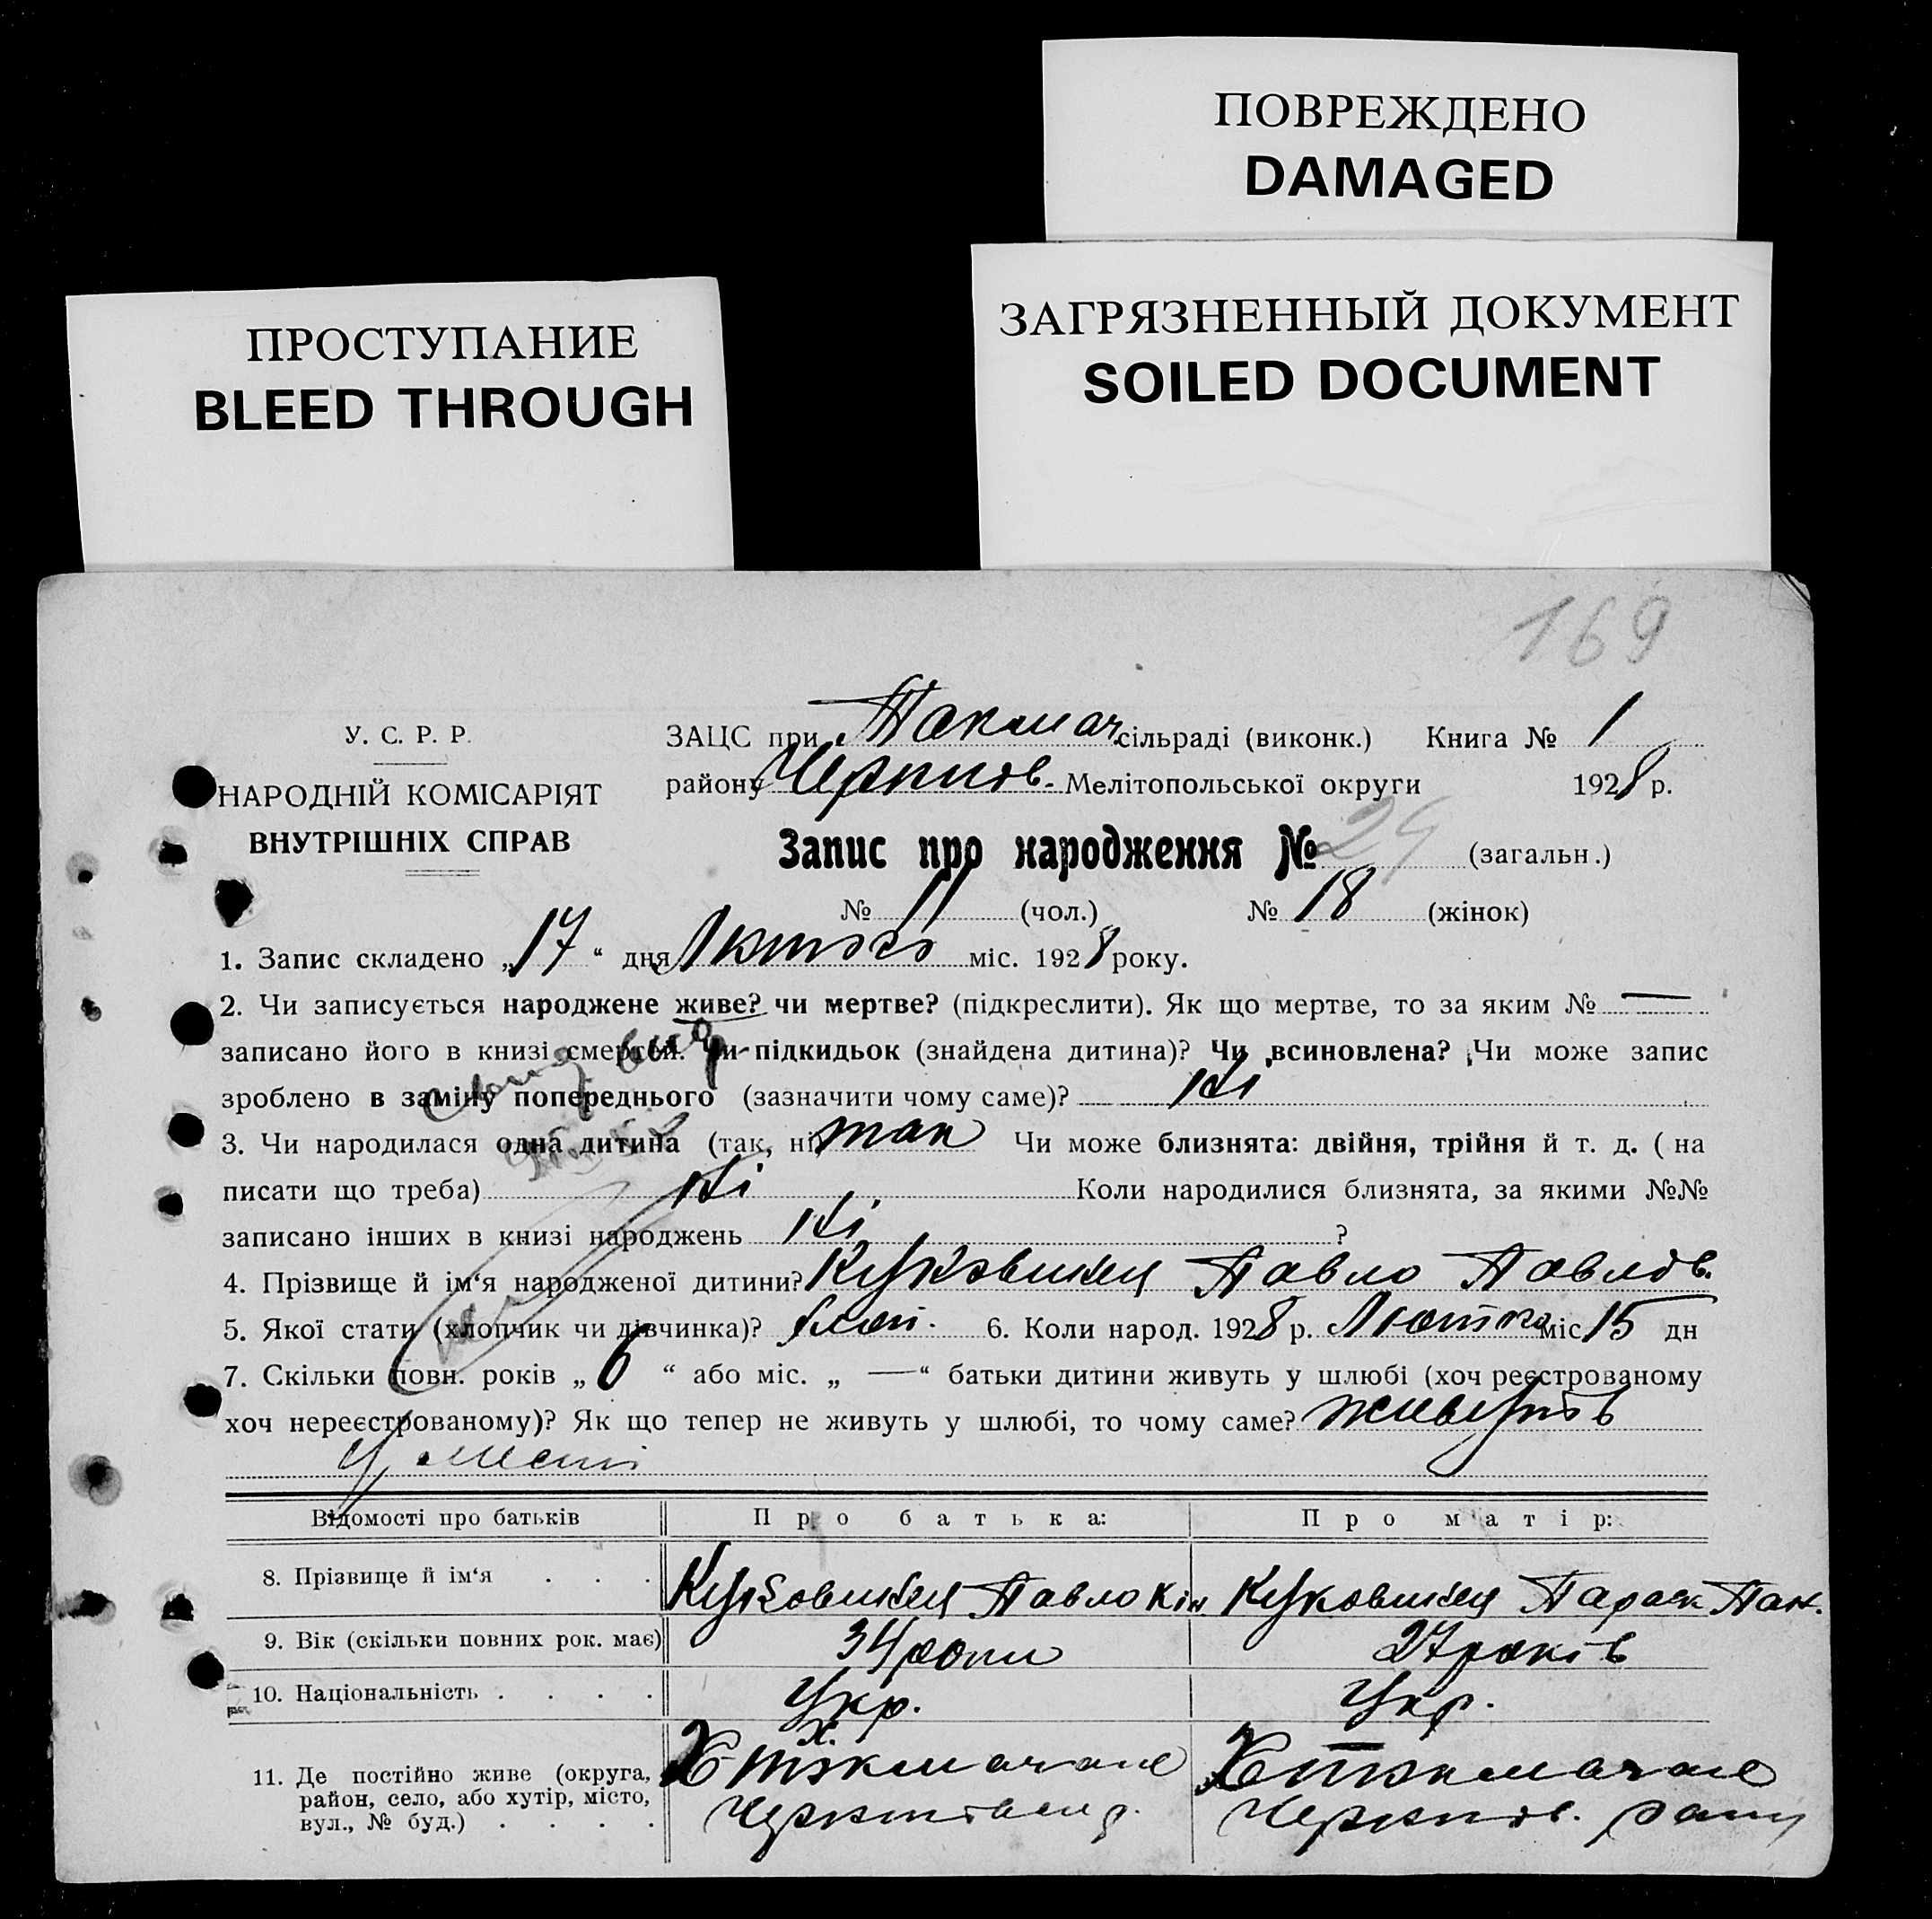 ПОВРЕЖДЕНО
DAMAGED
ПРОСТУПАНИЕ
BLEED THROUGH
ЗАГРЯЗНЕННЫЙ ДОКУМЕНТ
SOILED DOCUMENT
169
У. С. Р. Р.
НАРОДНІЙ КОМІСАРІЯТ
ВНУТРІШНІХ СПРАВ
ЗАЦС при Токмач сільраді (виконк.) Книга № 1
району Чернигов. Мелітопольської округи 1928 р.
Запис про народження № 29 (загальн.)
№ 11 (чол.) № 18 (жінок)
1. Запис складено „17“ дня Лютого міс. 1928 року.
2. Чи записується народжене живе? чи мертве? (підкреслити). Як що мертве, то за яким № —
записано його в книзі смертей. Чи підкидьок (знайдена дитина)? Чи всиновлена? Чи може запис
зроблено в заміну попереднього (зазначити чому саме)? Ні
3. Чи народилася одна дитина (так, ні) так Чи може близнята: двійня, трійня й т. д. ( на
писати що треба) Ні Коли народилися близнята, за якими №№
записано інших в книзі народжень Ні ?
4. Прізвище й ім‘я народженої дитини? Павло Павлов.
5. Якої стати (хлопчик чи дівчинка)? хлоп. 6. Коли народ. 1928 р. Лютого міс 15 дн
7. Скільки повн. років „ 6 “ або міс. „ —“ батьки дитини живуть у шлюбі (хоч реєстрованому
хоч нереєстрованому)? Як що тепер не живуть у шлюбі, то чому саме? живуть
у
Відомості про батьків Про батька: Про матір:
8. Прізвище й ім‘я . . . Павло Кін Парас Пан.
9. Вік (скільки повних рок. має) 34 роки 27 років
10. Національність . . . . Укр. Укр.
11. Де постійно живе (округа,
район, село, або хутір, місто,
вул., № буд.) . . . .